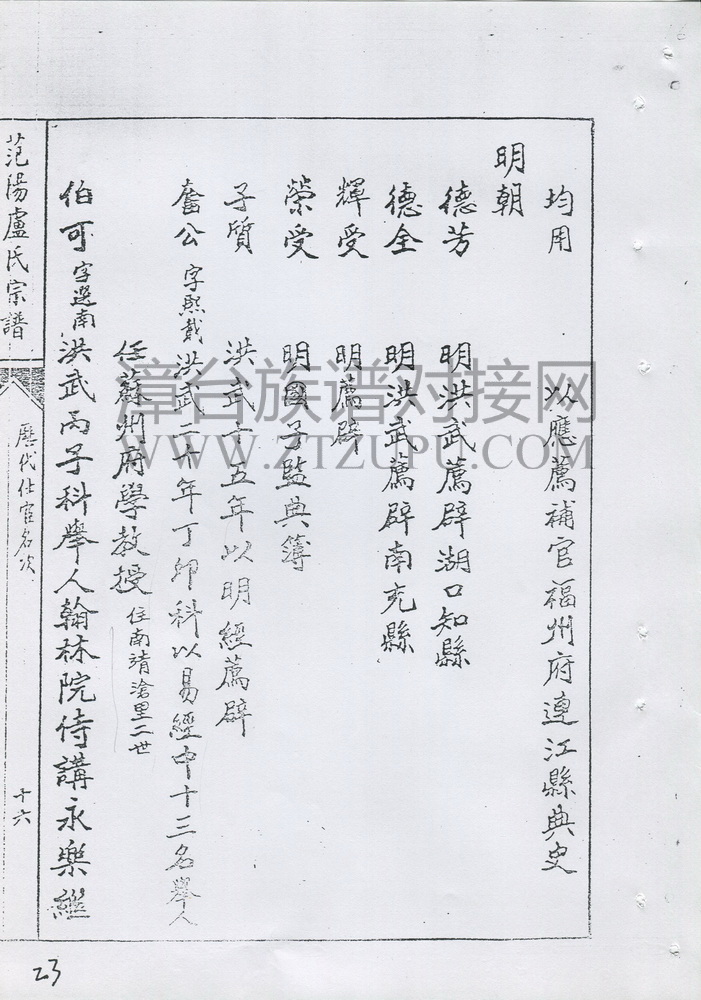 均用 以應薦補官福州府連江縣典史
明朝
德芳 明洪武薦辟湖口知縣
德全 明洪武薦辟南充縣
輝受 明薦辟
榮受 明國子監典簿
子質 洪武十五年以明經薦辟
奮公 字熙載 洪武二十年丁卯科以易經中十三名舉人
任蘇州府學教授 住南靖滄里二世
伯可 字選南 洪武丙子科舉人翰林院侍講永樂繼
范陽盧氏宗譜
歷代仕宦名次
十六
23
漳台族谱对接网
WWW.ZTZUPU.COM